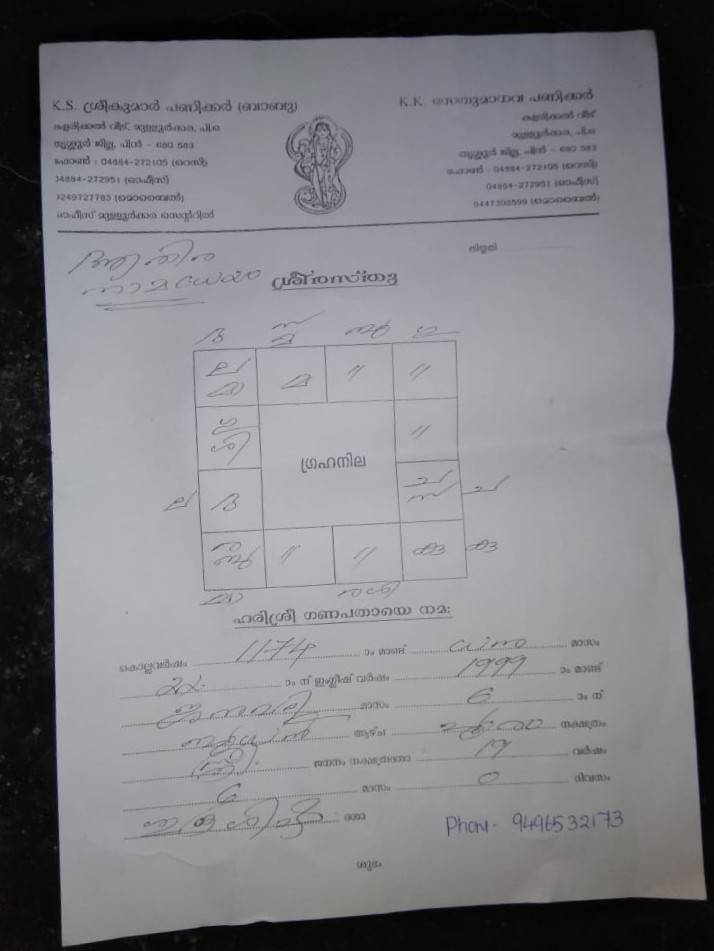 K.S. ശ്രീകുമാർ പണിക്കർ (ബാബു)
കളരിക്കൽ വീട്, മുള്ളൂർക്കര, പി.ഒ
തൃശ്ശൂർ ജില്ല, പിൻ - 680 583
ഫോൺ : 04884-272105 (റെസി)
04884-272951 (ഓഫീസ്)
9249727783 (മൊബൈൽ)
ഓഫീസ് മുള്ളൂർക്കര സെന്ററിൽ
K.K. സേതുമാധവ പണിക്കർ
കളരിക്കൽ വീട്
മുള്ളൂർക്കര, പി.ഒ
തൃശ്ശൂർ ജില്ല, പിൻ - 680 583
ഫോൺ : 04884-272105 (റെസി)
04884-272951 (ഓഫീസ്)
(മൊബൈൽ)
തിയ്യതി
ആതിര
നാമധേയം
ശ്രീരസ്തു
ഗു
ല
മാ
മ
〃
〃
〃
ഗ്രഹനില
ല
ഗു
ച
〃
〃
മാ
ഹരിശ്രീ ഗണപതായെ നമ:
കൊല്ലവർഷം 1174 ാം മാണ്ട് ധനു മാസം
22 ാം ന് ഇംഗ്ലീഷ് വർഷം 1999 ാം മാണ്ട്
ജനുവരി മാസം 6 ാം ന്
ബുധൻ ആഴ്ച പൂരം നക്ഷത്രം
ജനനം നക്ഷത്രദശാ 19 വർഷം
6 മാസം 0 ദിവസം
ദശാ
Phon- 9496532173
ശുഭം